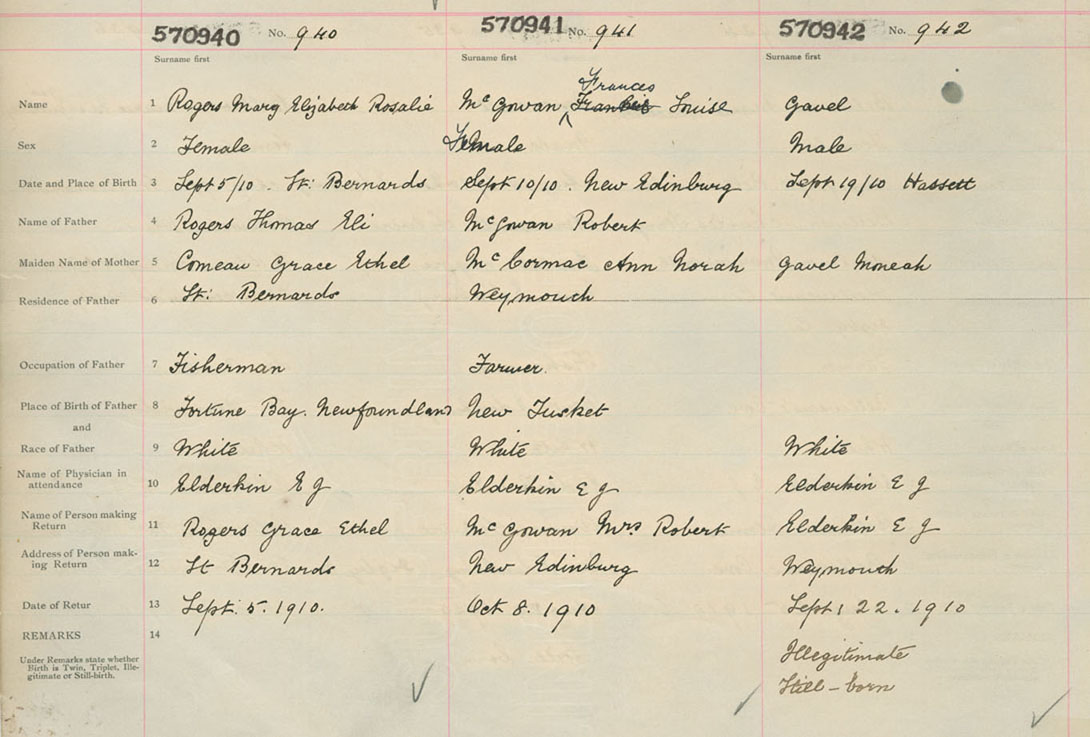 570940 No. 940 570941 No. 941 570942 No. 942
Surname first Surname first Surname first
Frances
Name 1 Rogers Mary Elizabeth Rosalie McGowan Louise Gavel
Sex 2 Female Female Male
Date and Place of Birth 3 Sept 5/10. St: Bernards Sept 10/10. New Edinburg Sept 19/10 Hassett
Name of Father 4 Rogers Thomas Eli McGowan Robert
Maiden Name of Mother 5 Comeau Grace Ethel McCormac Ann Norah Gavel Moneah
Residence of Father 6 St: Bernards Weymouth
Occupation of Father 7 Fisherman Farmer.
Place of Birth of Father 8 Fortune Bay. Newfoundland New Tusket
and
Race of Father 9 White White White
Name of Physician in
attendance 10 Elderkin E G Elderkin E G Elderkin E G
Name of Person making
Return 11 Rogers Grace Ethel McGowan Mrs Robert Elderkin E G
Address of Person mak-
ing Return 12 St Bernards New Edinburg Weymouth
Date of Retur 13 Sept. 5. 1910. Oct 8. 1910 Sept 22. 1910
REMARKS 14
Under Remarks state whether
Birth is Twin, Triplet, Ille-
gitimate or Still-birth.
Illegitimate
Still-born